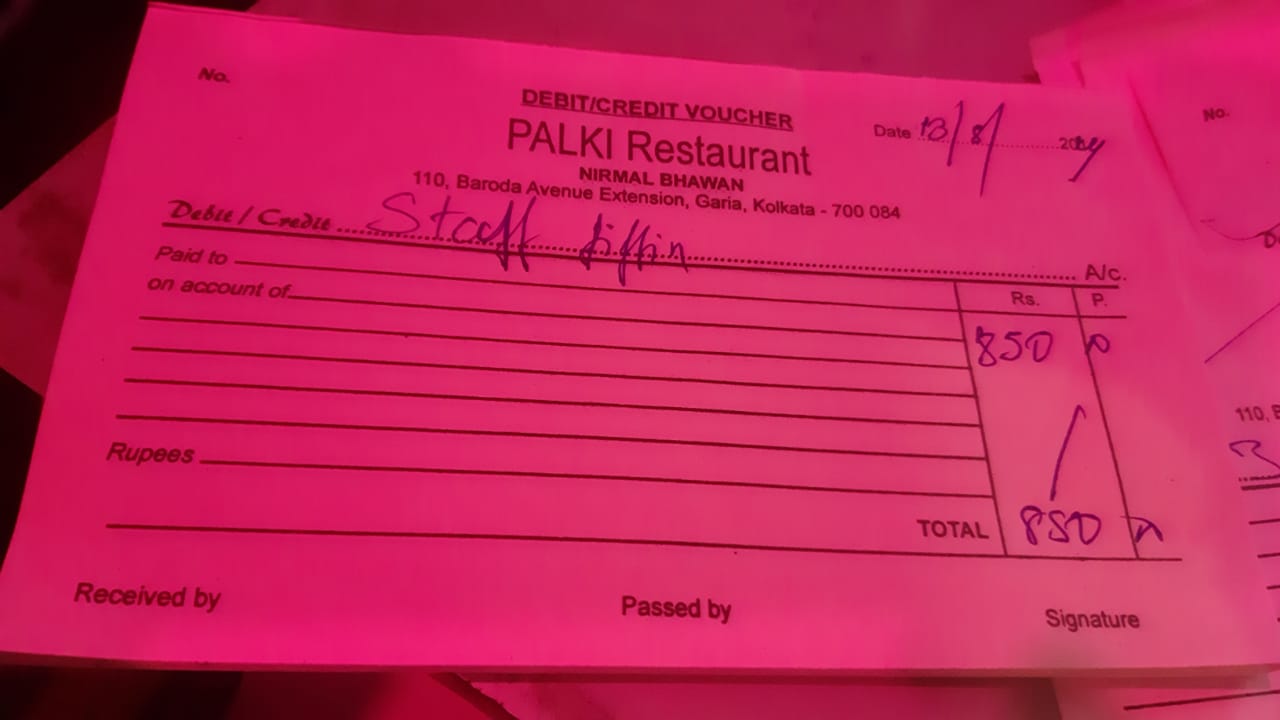 No.
DEBIT/CREDIT VOUCHER
PALKI Restaurant
NIRMAL BHAWAN
110, Baroda Avenue Extension, Garia, Kolkata - 700 084
Date 13/8/ 2024
Debit / Credit Staff tiffin A/c.
Paid to
on account of
Rs. P.
850
Rupees
TOTAL 850
Received by Passed by Signature
No.
110,